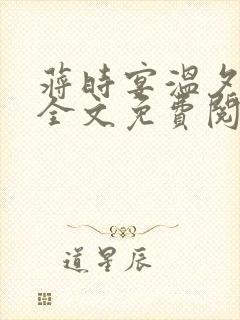 蒋時宴温夕
全文免費閱
道星辰